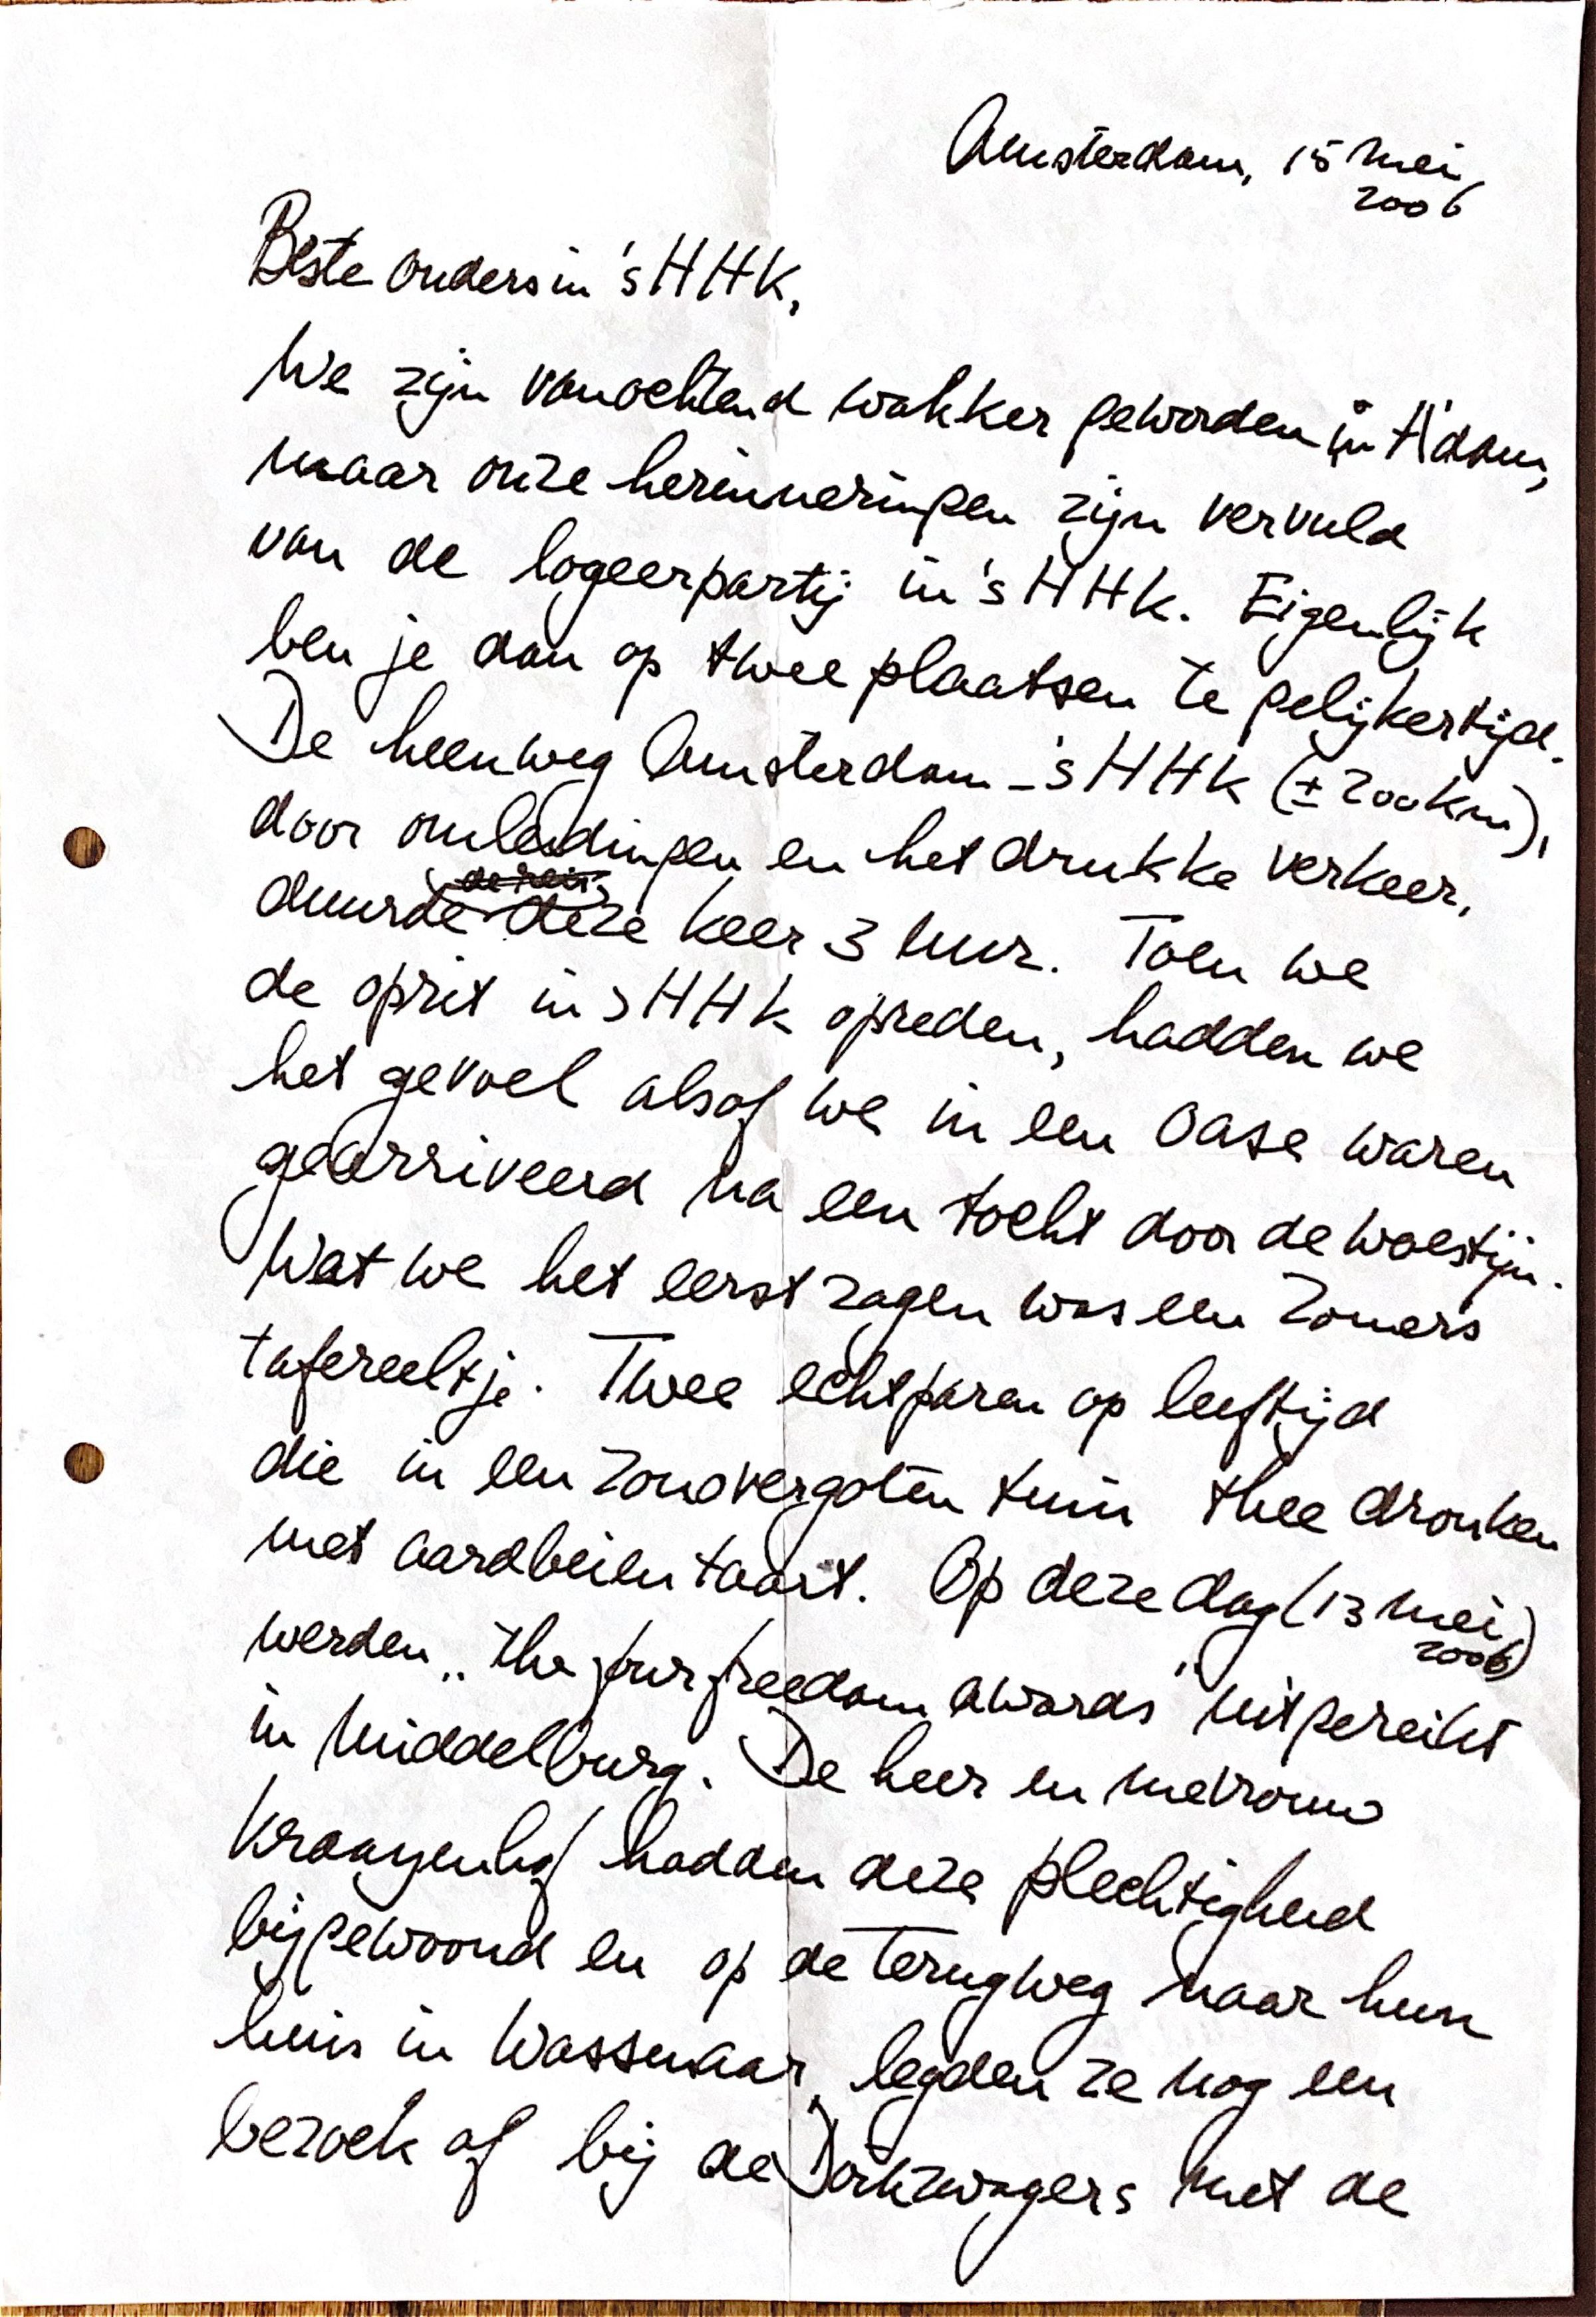 Amsterdam, 15 mei
2006
Beste ouders in 's HHK,
We zijn vanochtend wakker geworden in A'dam,
maar onze herinneringen zijn vervuld
van de logeerpartij in 's HHK. Eigenlijk
ben je dan op twee plaatsen te gelijkertijd.
De heenweg Amsterdam - 's HHK (± 200km),
door omleidingen en het drukke verkeer,
duurde deze keer 3 uur. Toen we
de oprit in 's HHK opreden, hadden we
het gevoel alsof we in een oase waren
gearriveerd na een tocht door de woestijn.
Wat we het eerst zagen was een zomers
tafereeltje. Twee echtparen op leeftijd
die in een zonovergoten tuin thee dronken
met aardbeien taart. Op deze dag (13 mei
2006)
werden „the four freedom awards" uitgereikt
in Middelburg. De heer en mevrouw
Kraayenhof hadden deze plechtigheid
bijgewoond en op de terugweg naar hun
huis in Wassenaar, legden ze nog een
bezoek af bij de Dirkzwagers met de